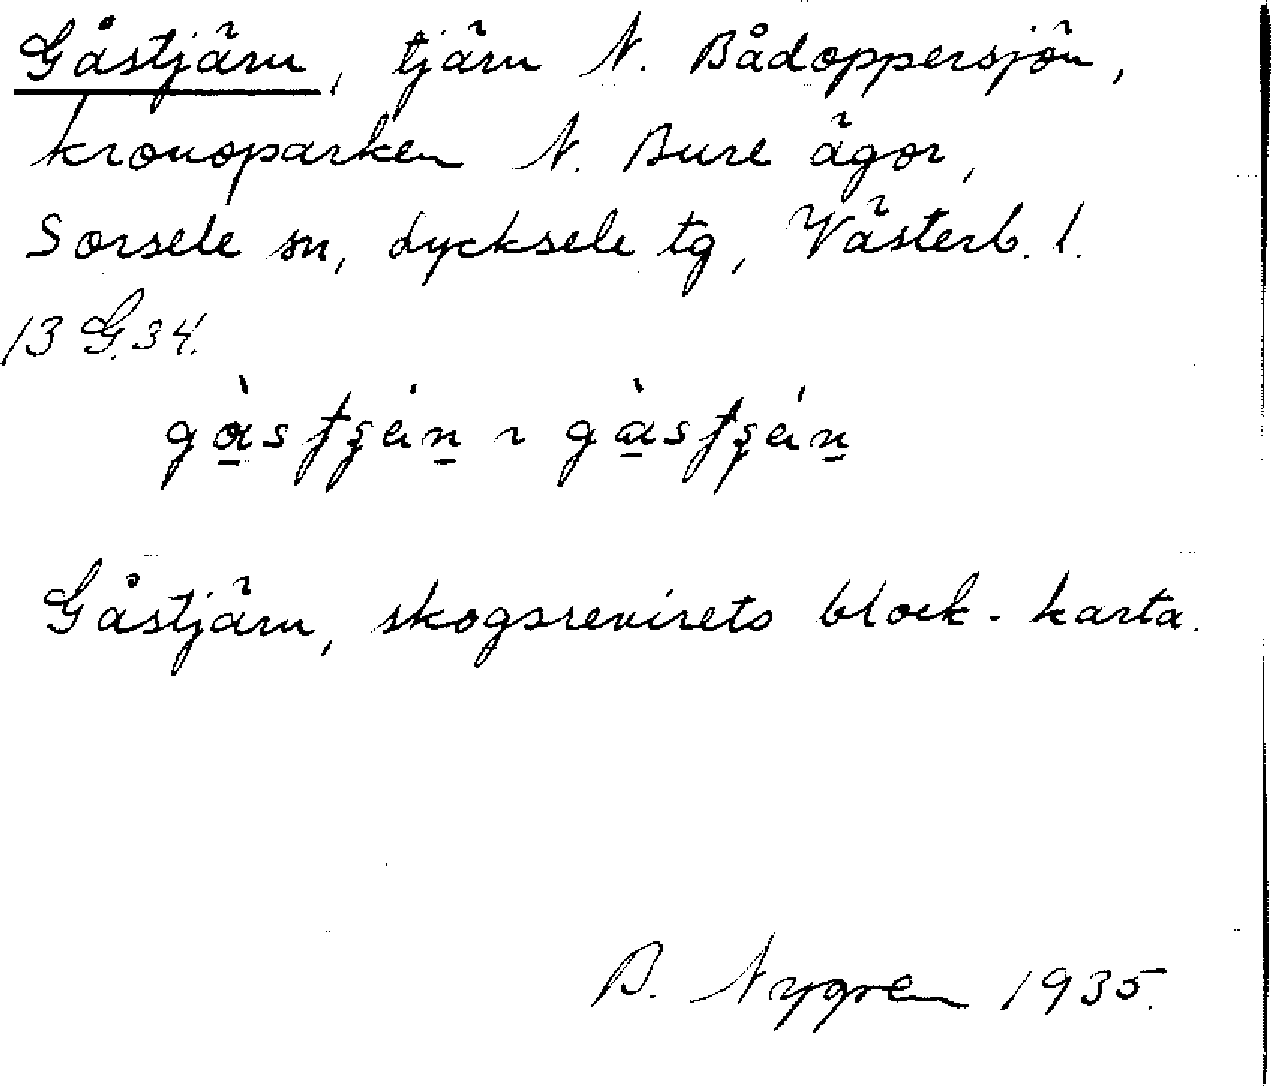 Gåstjärn, tjärn N. Bådoppersjön,
kronoparken N. Bure ägor,
Sorsele sn, Lycksele tg, Västerb. l.
13 G.34.
Gåstjärn, skogsrevirets block-karta.
B. Nygren 1935.